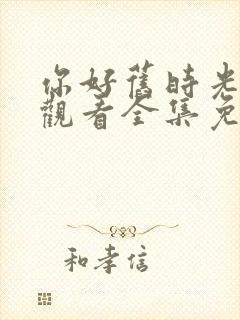 你好舊時光
觀看全集免
和孝信